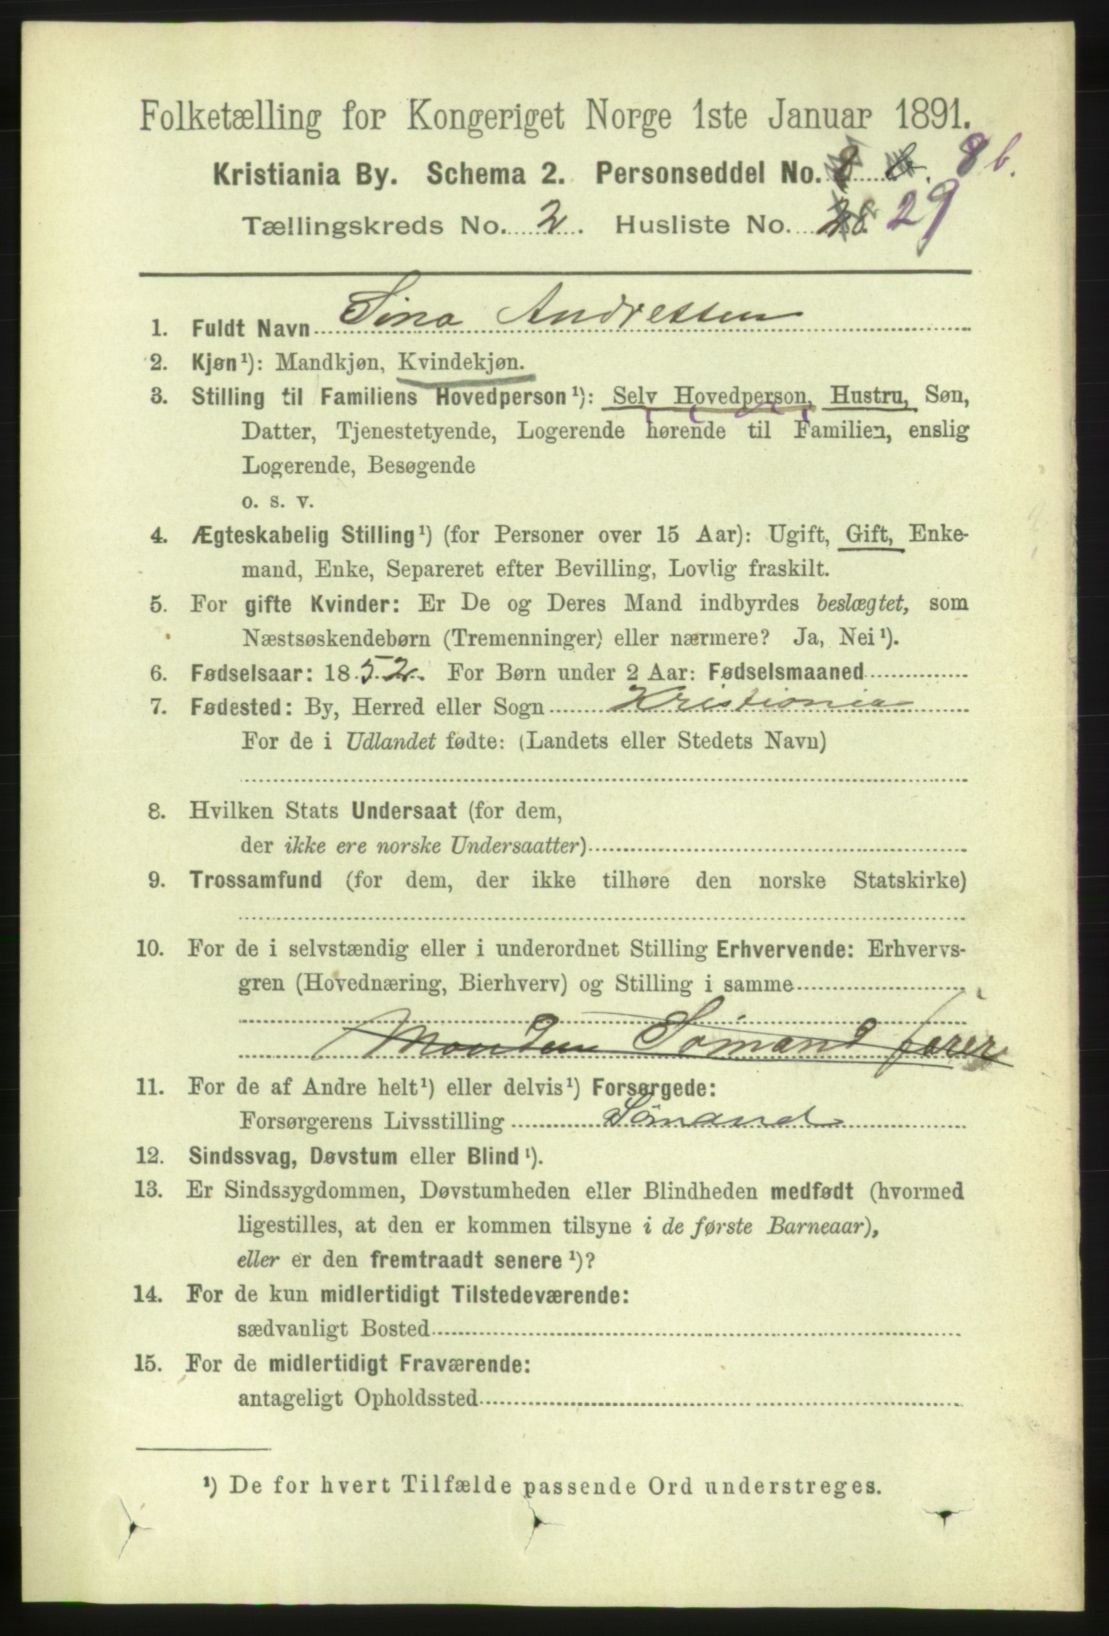 Folketælling for Kongeriget Norge 1ste Januar 1891.
Kristiania By. Schema 2. Personseddel No. 8 b. 8 b.
Tællingskreds No. 2. Husliste No. 28. 29
1. Fuldt Navn Sina Andressen
2. Kjøn¹): Mandkjøn, Kvindekjøn.
3. Stilling til Familiens Hovedperson¹): Selv Hovedperson, Hustru, Søn,
Datter, Tjenestetyende, Logerende hørende til Familien, enslig
Logerende, Besøgende
o. s. v.
4. Ægteskabelig Stilling¹) (for Personer over 15 Aar): Ugift, Gift, Enke-
mand, Enke, Separeret efter Bevilling, Lovlig fraskilt.
5. For gifte Kvinder: Er De og Deres Mand indbyrdes beslægtet, som
Næstsøskendebørn (Tremenninger) eller nærmere? Ja, Nei¹).
6. Fødselsaar: 1852. For Børn under 2 Aar: Fødselsmaaned
7. Fødested: By, Herred eller Sogn Kristiania
For de i Udlandet fødte: (Landets eller Stedets Navn)
8. Hvilken Stats Undersaat (for dem,
der ikke ere norske Undersaatter)
9. Trossamfund (for dem, der ikke tilhøre den norske Statskirke)
10. For de i selvstændig eller i underordnet Stilling Erhvervende: Erhvervs-
gren (Hovednæring, Bierhverv) og Stilling i samme
Manden Sømand farer
11. For de af Andre helt¹) eller delvis¹) Forsørgede:
Forsørgerens Livsstilling Sømand
12. Sindssvag, Døvstum eller Blind¹).
13. Er Sindssygdommen, Døvstumheden eller Blindheden medfødt (hvormed
ligestilles, at den er kommen tilsyne i de første Barneaar),
eller er den fremtraadt senere¹)?
14. For de kun midlertidigt Tilstedeværende:
sædvanligt Bosted
15. For de midlertidigt Fraværende:
antageligt Opholdssted
¹) De for hvert Tilfælde passende Ord understreges.